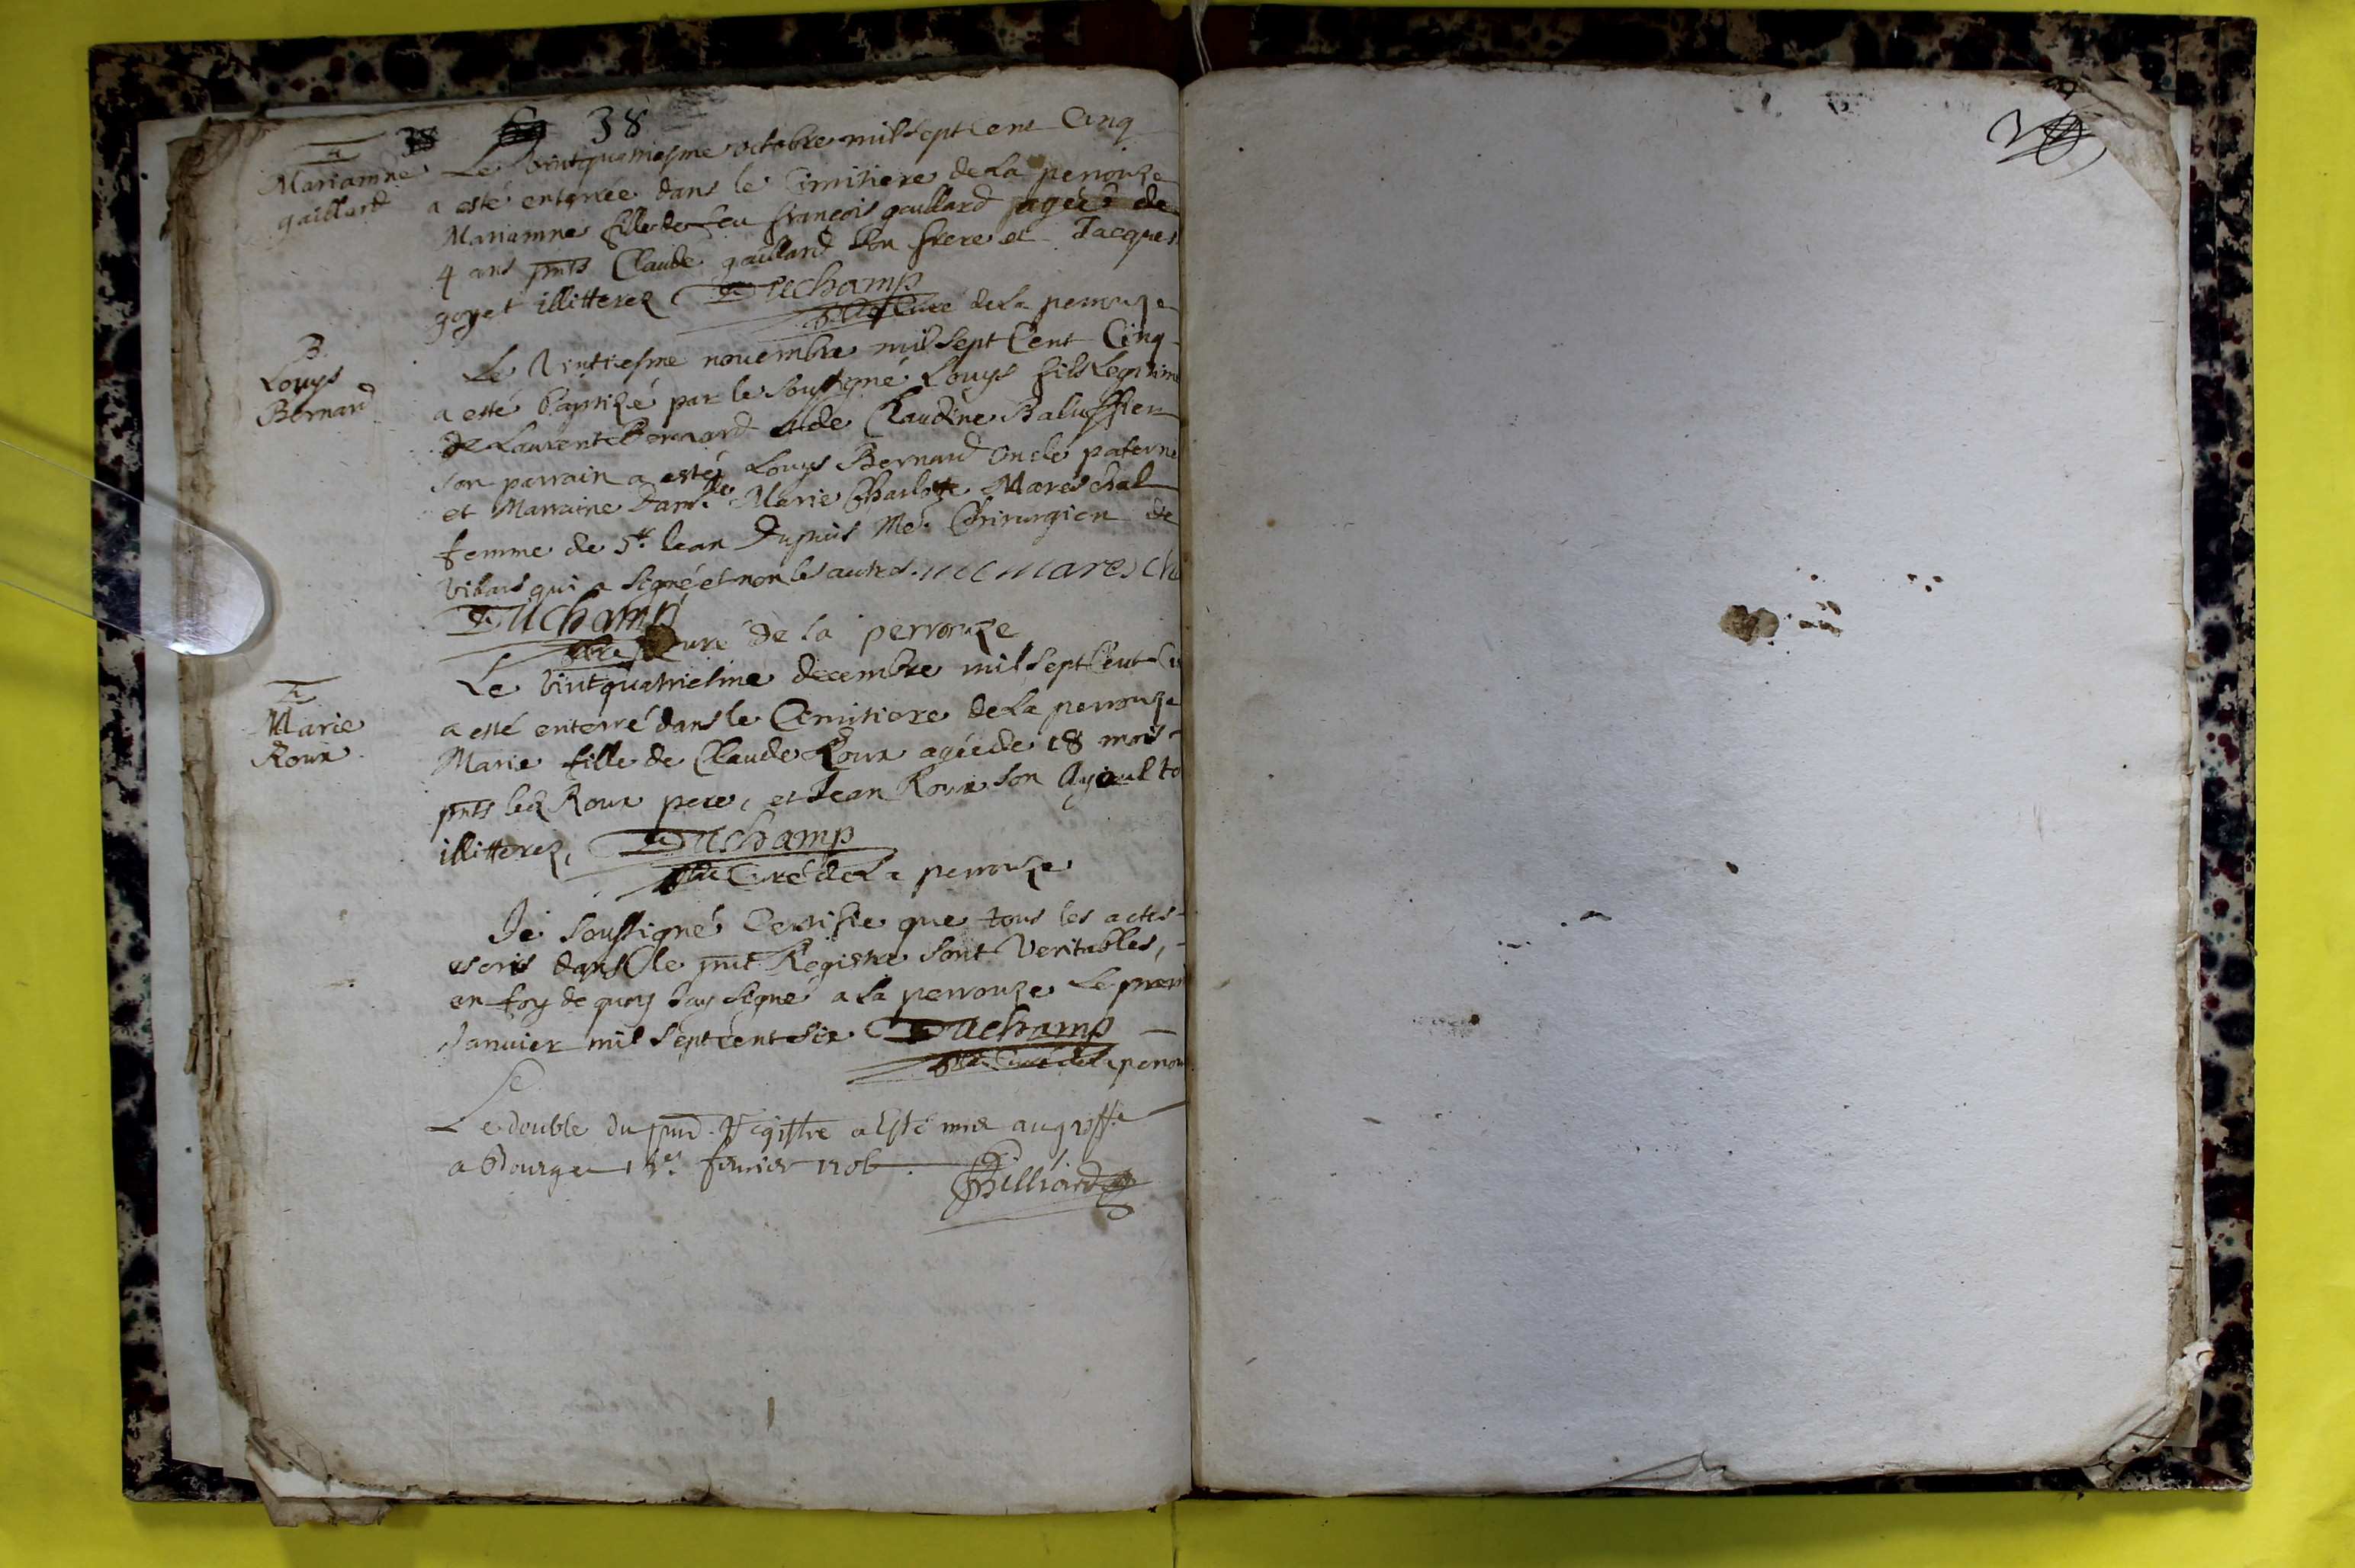 38
Mariamne
gaillard
Le vintquatriesme octobre mil sept Cent Cinq
a esté enterrée dans le Cimitiere de La perrouze
Mariamne fille de feu françois gaillard agéé de
4 ans pnts Claude gaillard son frere et Jacques
goyet illitterez Duchamp
pbre Curé de La perrouze
B.
Louys
Bernard
Le Vintiesme novembre mil sept Cent Cinq
a esté baptizé par le soussigné Louys fils Legitime
de Laurent Bernard et de Claudine
son parrain a esté Louys Bernard Oncle paterne
et Marraine Dam.lle Marie Charlotte Mareschal
femme de Sr. Jean Dupuis Me. Chirurgien de
Vilars qui a signé et non les autres. Maresch
Duchamp
pbre Curé de la perrouze
Marie
Roux
Le Vintquatriesme decembre mil sept Cent
a esté enterré dans le Cimitiere de La perrouze
Marie fille de Claude Roux agéé de 18 mois
pnts led Roux pere, et Jean Roux son Ayeul
illitterez, Duchamp
pbre Curé de La perrouze
Je soussigné Certifie que tous les actes
escris dans le pnt Registre sont Veritables,
en foy de quoy Jay signé a la perrouze Le prem
Janvier mil sept cent six Duchamp
pbre Curé de La perrou
Le double du pnt Registre a esté mis au greffe
a Bourg ce 1er fevrier 1706.
Billiard